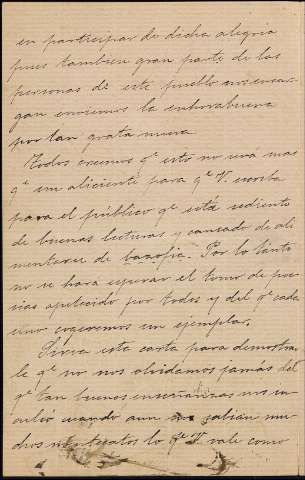 en participar de dicha alegria
pues tambien gran parte de las
personas de este pueblo nos encar-
gan enviemos la enhorabuena
por tan grata nueva
Todos creemos qe esto no será mas
qe un aliciente para qe V. escriba
para el público qe está sediento
de buenas lecturas y cansado de ali
mentarse de bazofia. Por lo tánto
no se hara esperar el tomo de poe
sias apetecido por todos y del qe cada
uno cogeremos un ejemplar.
Sirva esta carta para demostrar
le qe no nos olvidamos jamás del
qe tan buenas enseñanzas nos in
culcó cuando aun no sabian mu
chos mentecatos lo qe V. vale como